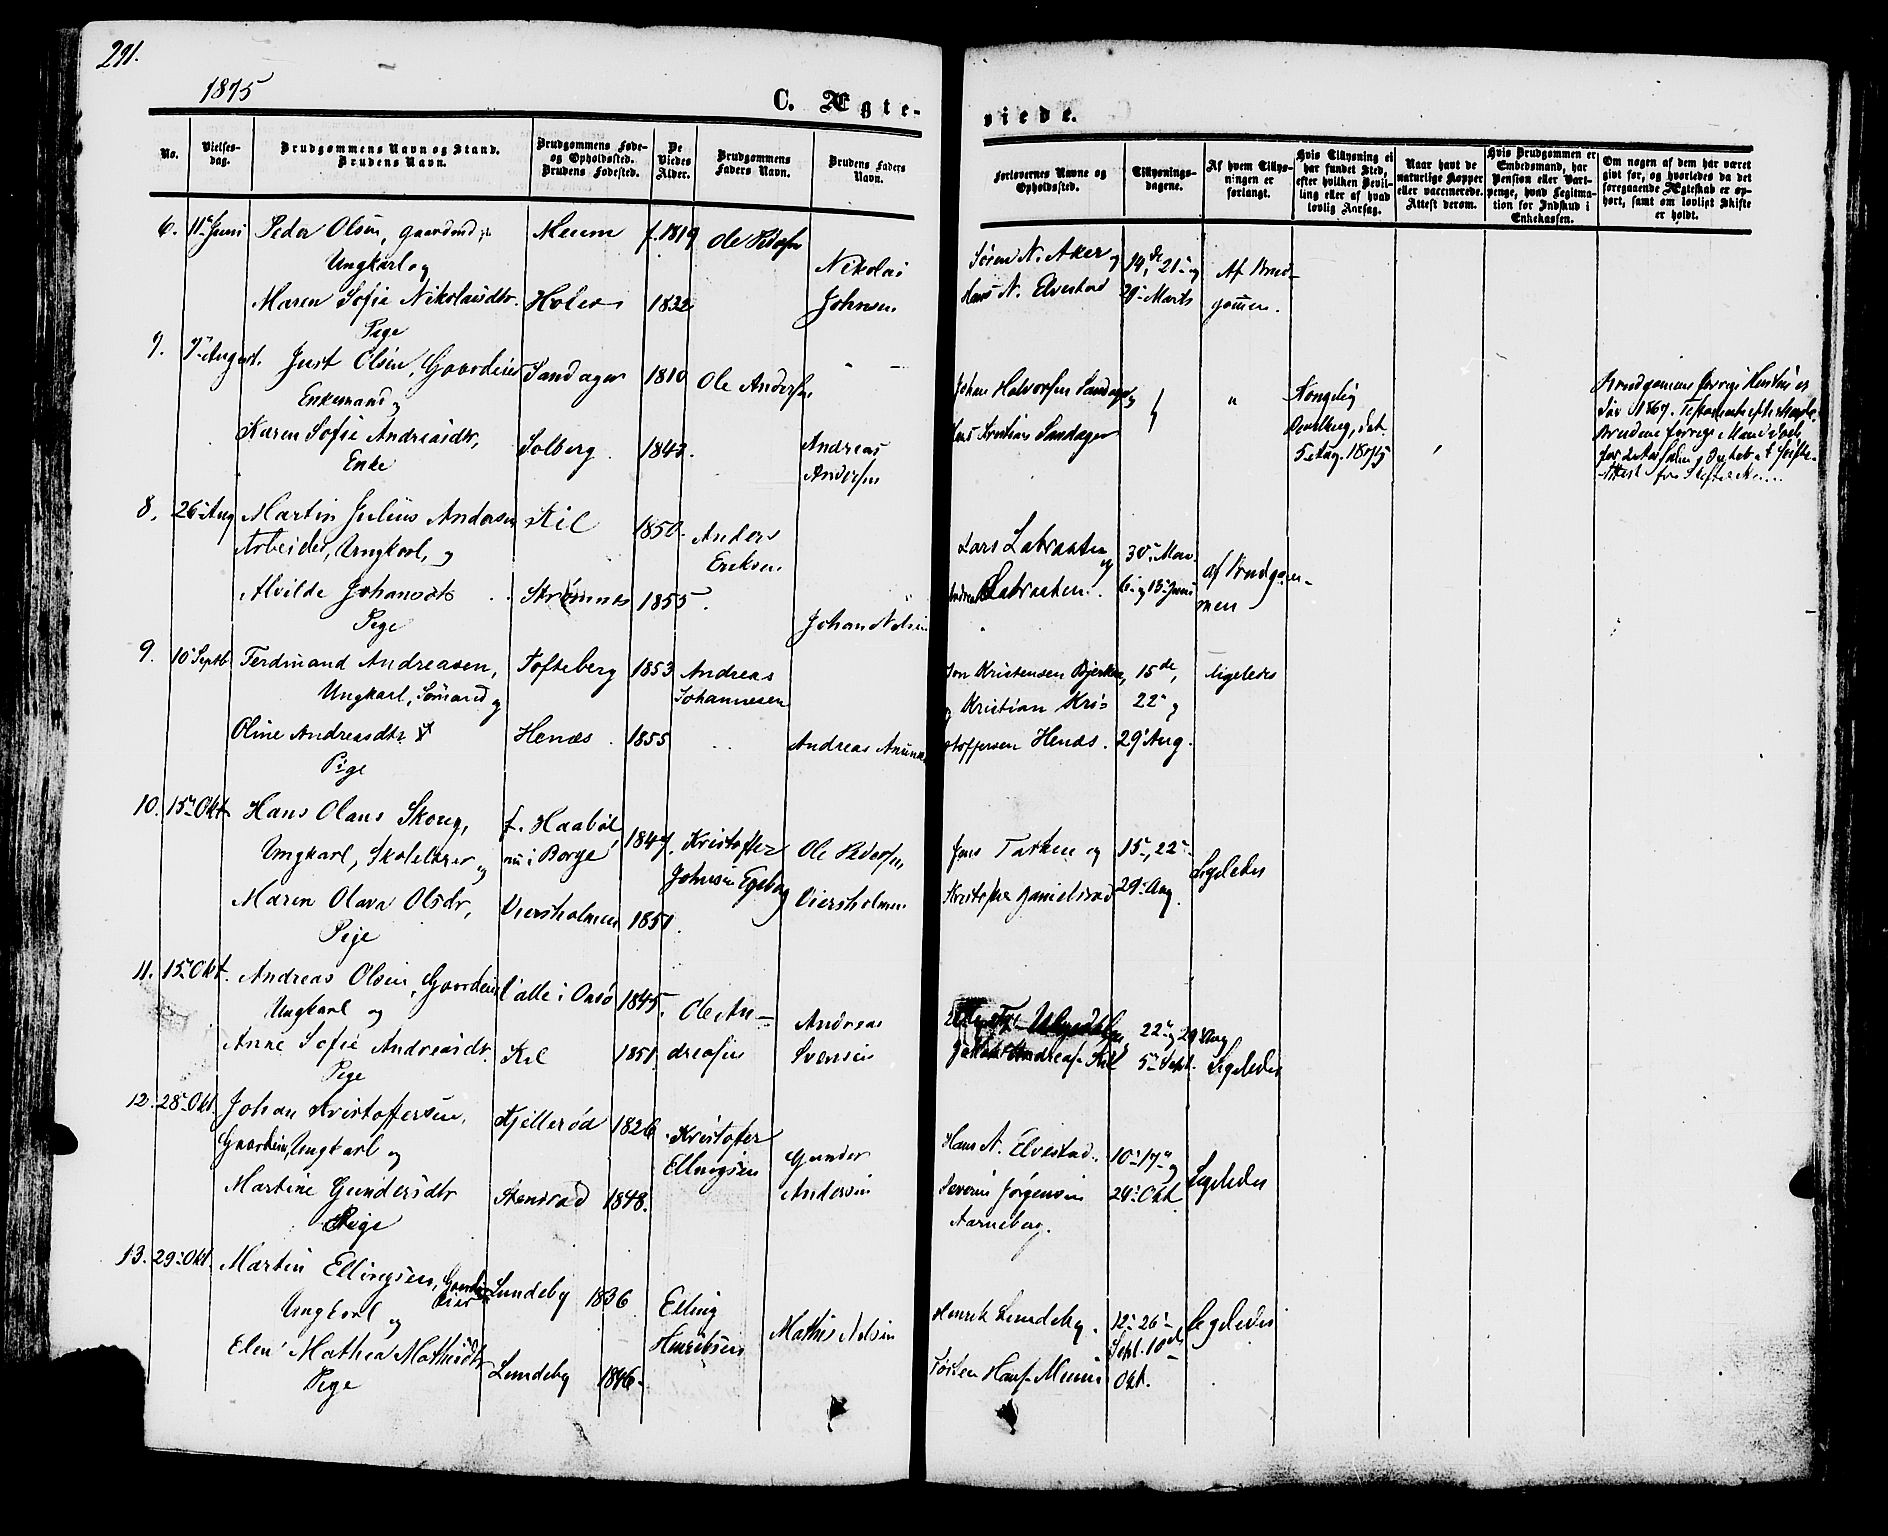 291.
1875
C. Ægte-
viede.
No.
Vielses-
dag.
Brudgommens Navn og Stand.
Brudens Navn.
Brudgommens Føde-
og Opholdssted.
Brudens Fødested.
De
Viedes
Alder.
Brudgommens
Faders Navn.
Brudens Faders
Navn.
Forlovernes Navne og
Opholdssted.
Tillysnings-
dagene.
Af hvem Tillys-
ningen er
forlangt.
Hvis Tillysning ei
har fundet Sted,
efter hvilken Bevil-
ling eller af hvad
lovlig Aarsag.
Naar havt de
naturlige Kopper
eller vaccinerede.
Attest derom.
Hvis Brudgommen er
Embedsmand, har
Pension eller Vart-
penge, hvad Legitima-
tion for Indskud i
Enkekassen.
Om nogen af dem har været
gift før, og hvorledes da det
foregaaende Ægteskab er op-
hørt, samt om lovligt Skifte
er holdt.
6. 11 Juni Peder Olsen,
Ungkarl og
Maren Sofie Nikolaisdtr.
Pige
Holer
f. 1819
1832
Ole
Nikolai
Johnsen
Søren N. Aker og
Hans N. Elvestad
14de, 21 og
29 Marts
Af Brud-
gommen.
7. August. Just Olsen, Gaardeier
Enkemand og
Karen Sofie Andreasdtr,
Enke
Sandager
Solberg.
1810
1842.
Ole Andersen
Andreas
Andersen
Johan Halvorsen Sandager
Hans Kristian Sandager
"
Kongelig
Bevilling, dat.
5 Aug. 1875
Brudgommens forrige Hustru er
død 1867.
Brudens forrige Mand
8. 26 Aug Martin Julius Andersen
Arbeider, Ungkarl, og
Alvilde Johansdtr
Pige
Kil
Strømnes
1850.
1855.
Anders
Eriksen.
Johan Nilsen
Lars Labraaten og
Labraaten.
30 Mai
6 og 13 Juni
af Brudgom-
men
9. 10 Septb Ferdinand Andreasen,
Ungkarl, Sømand og
Oline Andreasdtr
Pige
Tofteberg
Henæs.
1853
1855
Andreas
Johannesen
Andreas
Jon Kristensen Bjerken,
og Kristian Kris-
toffersen Henæs.
15de,
22 og
29 Aug.
ligeledes
10. 15 Okt. Hans Olaus Skoug,
Ungkarl, Skolelærer og
Maren Olava Olsdtr,
Pige
f. Haabøl
nu i Borge
Viersholmen
1847.
1851.
Kristoffer
Johnsen
Ole Pedersen
Viersholmen
Jens Tasken og
Kristoffer Danielsrød
15, 22
29 Aug.
Ligeledes
11. 15 Okt. Andreas Olsen, Gaardeier
Ungkarl og
Anne Sofie Andreasdtr
Pige
i Onsø
Kil
1845.
1851.
Ole An-
dreasen
Andreas
Svensen
Jakob Andreas. Kil
22 og 29 Aug
5 Sept.
Ligeledes
12. 28 Okt. Johan Kristoffersen,
Gaardeier, Ungkarl og
Martine Gundersdtr
Pige
Kjillerød
Stensrød
1826
1848.
Kristofer
Ellingsen
Gunder
Andersen
Hans N. Elvestad.
Severin Jørgensen
Aarneberg.
10 17 og
24 Okt.
Ligeledes
13. 29 Okt. Martin Ellingsen, Gaard-
eier
Ungkarl og
Elen Mathea Mathisdtr
Pige
Lundeby
Lundeby
1836
1846.
Elling
Henriksen
Mathis Nilsen
Henrik Lundeby.
12 26
Sept. 10de
Okt.
Ligeledes